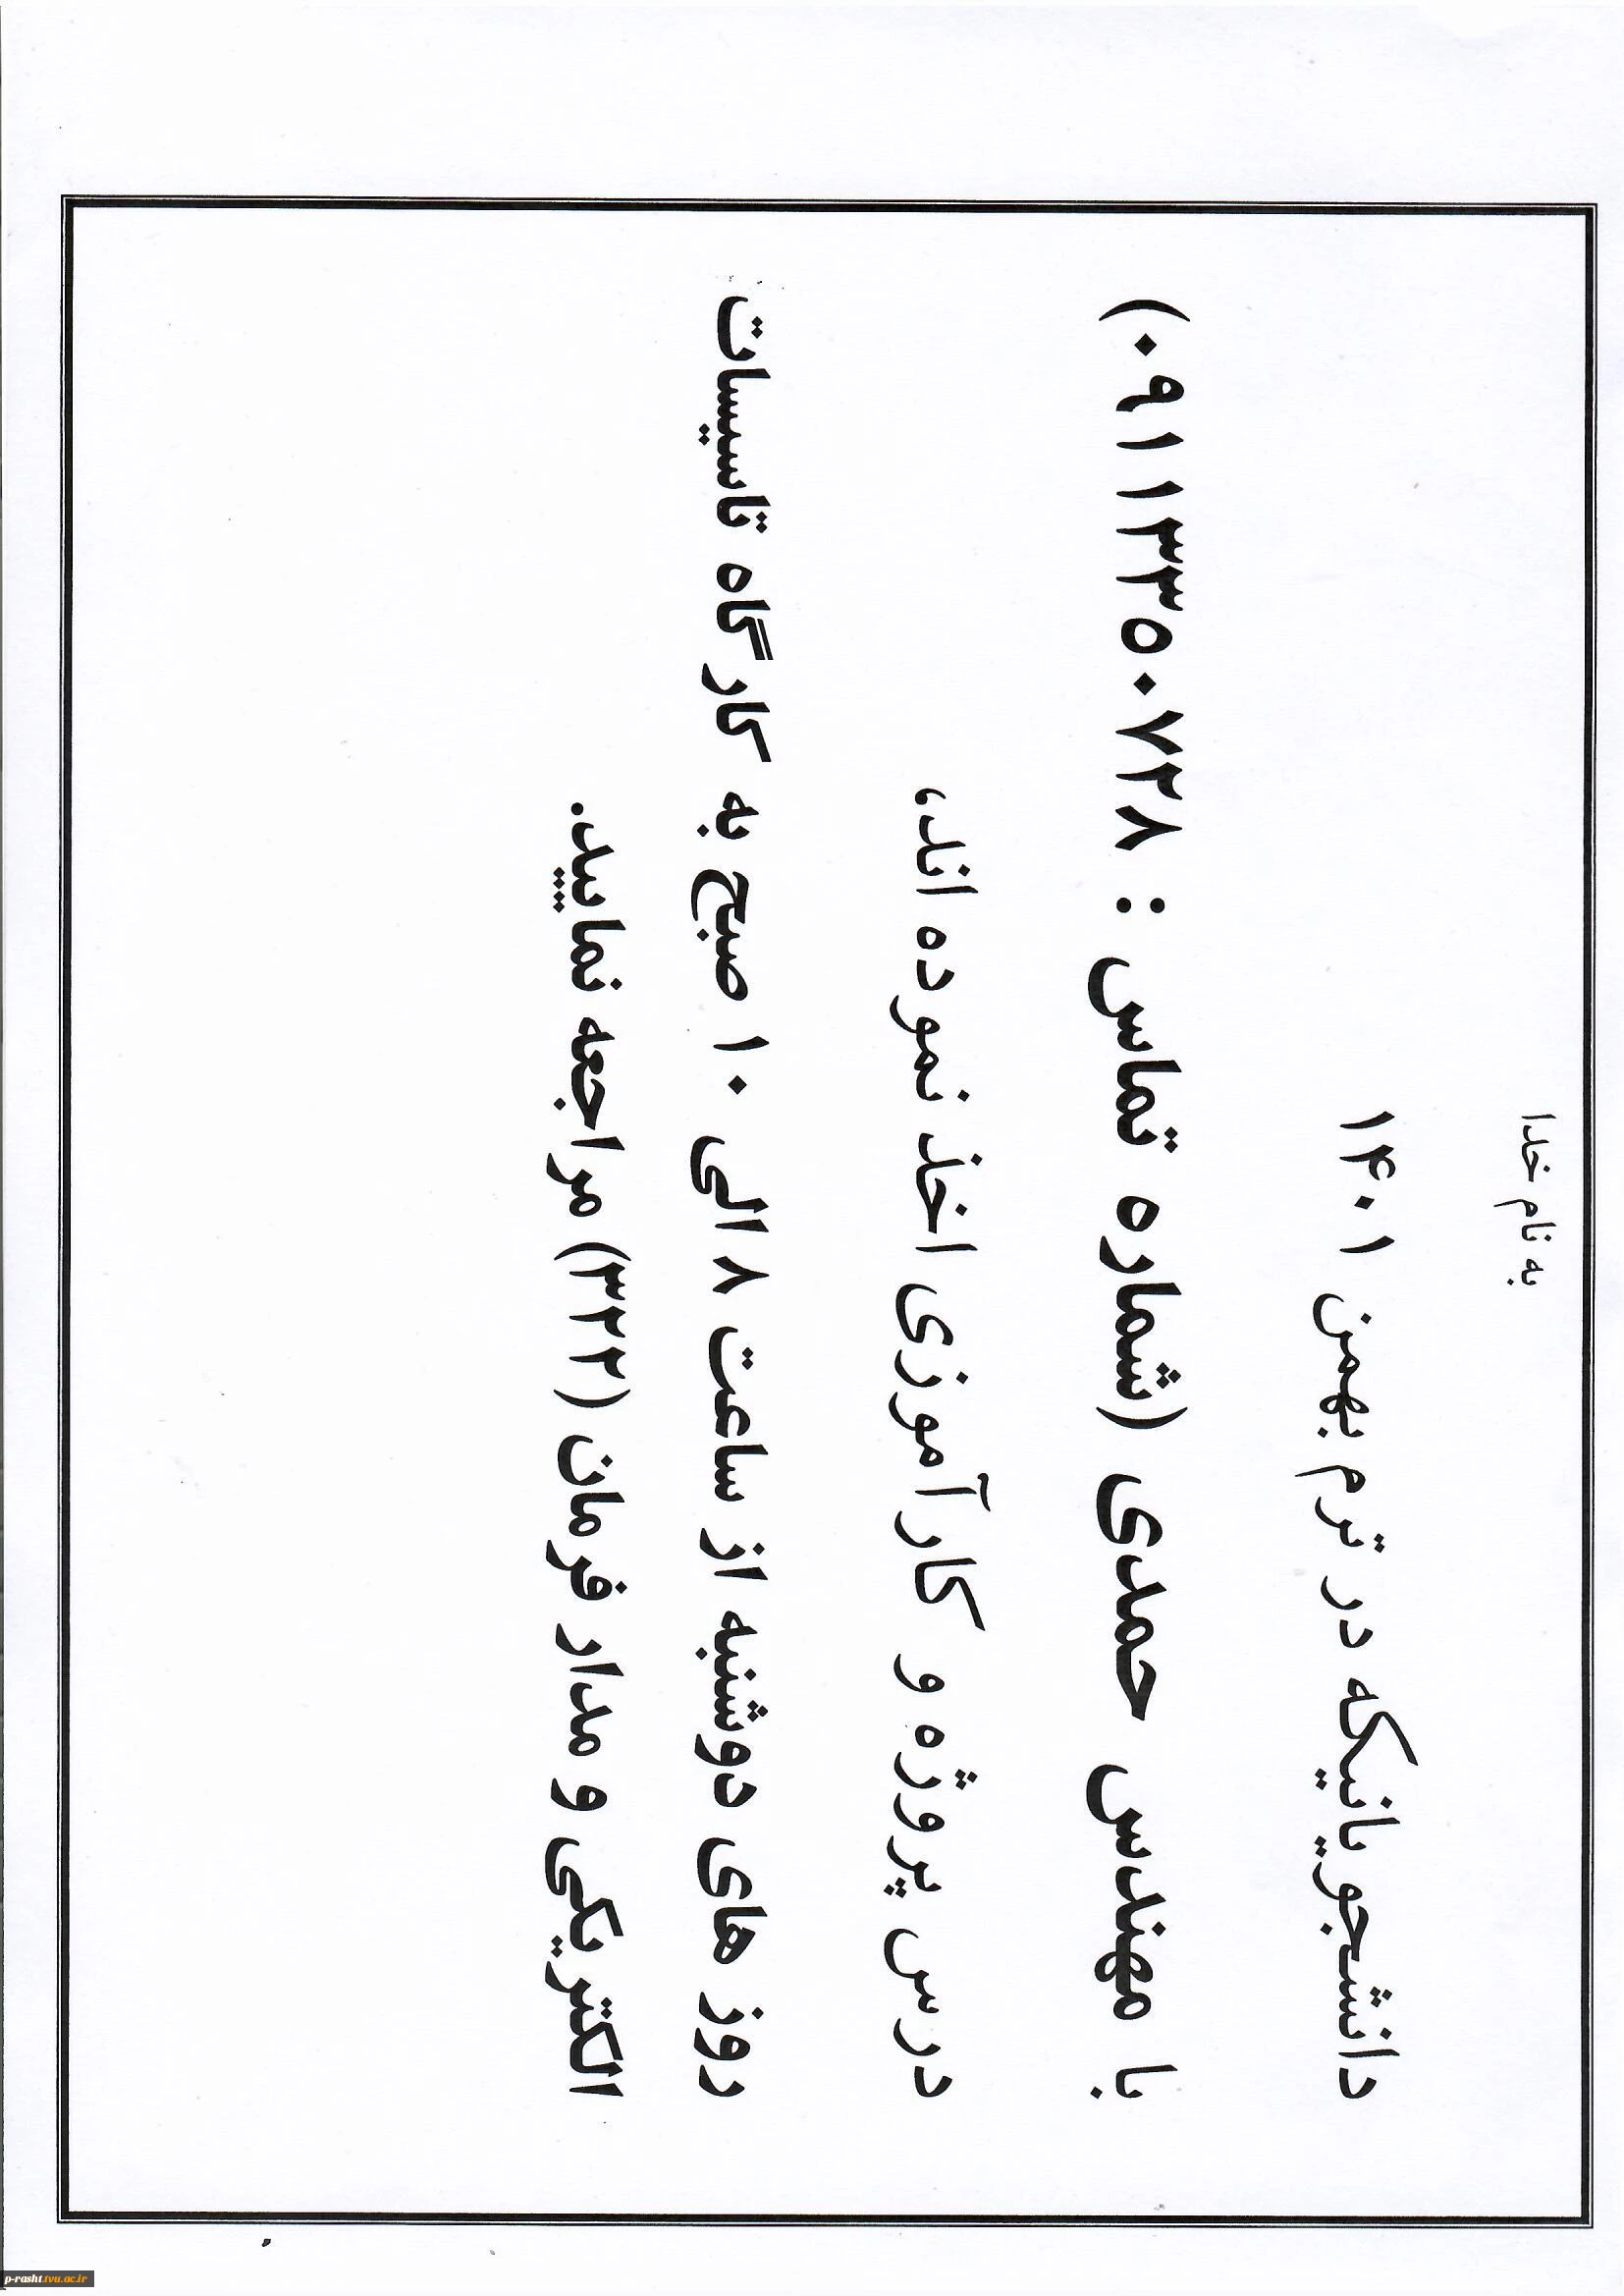 به نام خدا
دانشجویانیکه در ترم بهمن ۱۴۰۱
با مهندس حمدی (شماره تماس : ۰۹۱۱۳۳۵۰۷۲۸)
درس پروژه و کارآموزی اخذ نموده اند،
روز های دوشنبه از ساعت ۸ الی ۱۰ صبح به کارگاه تاسیسات
الکتریکی و مدار فرمان (۳۲۲) مراجعه نمایید.
p-rasht.tvu.ac.ir